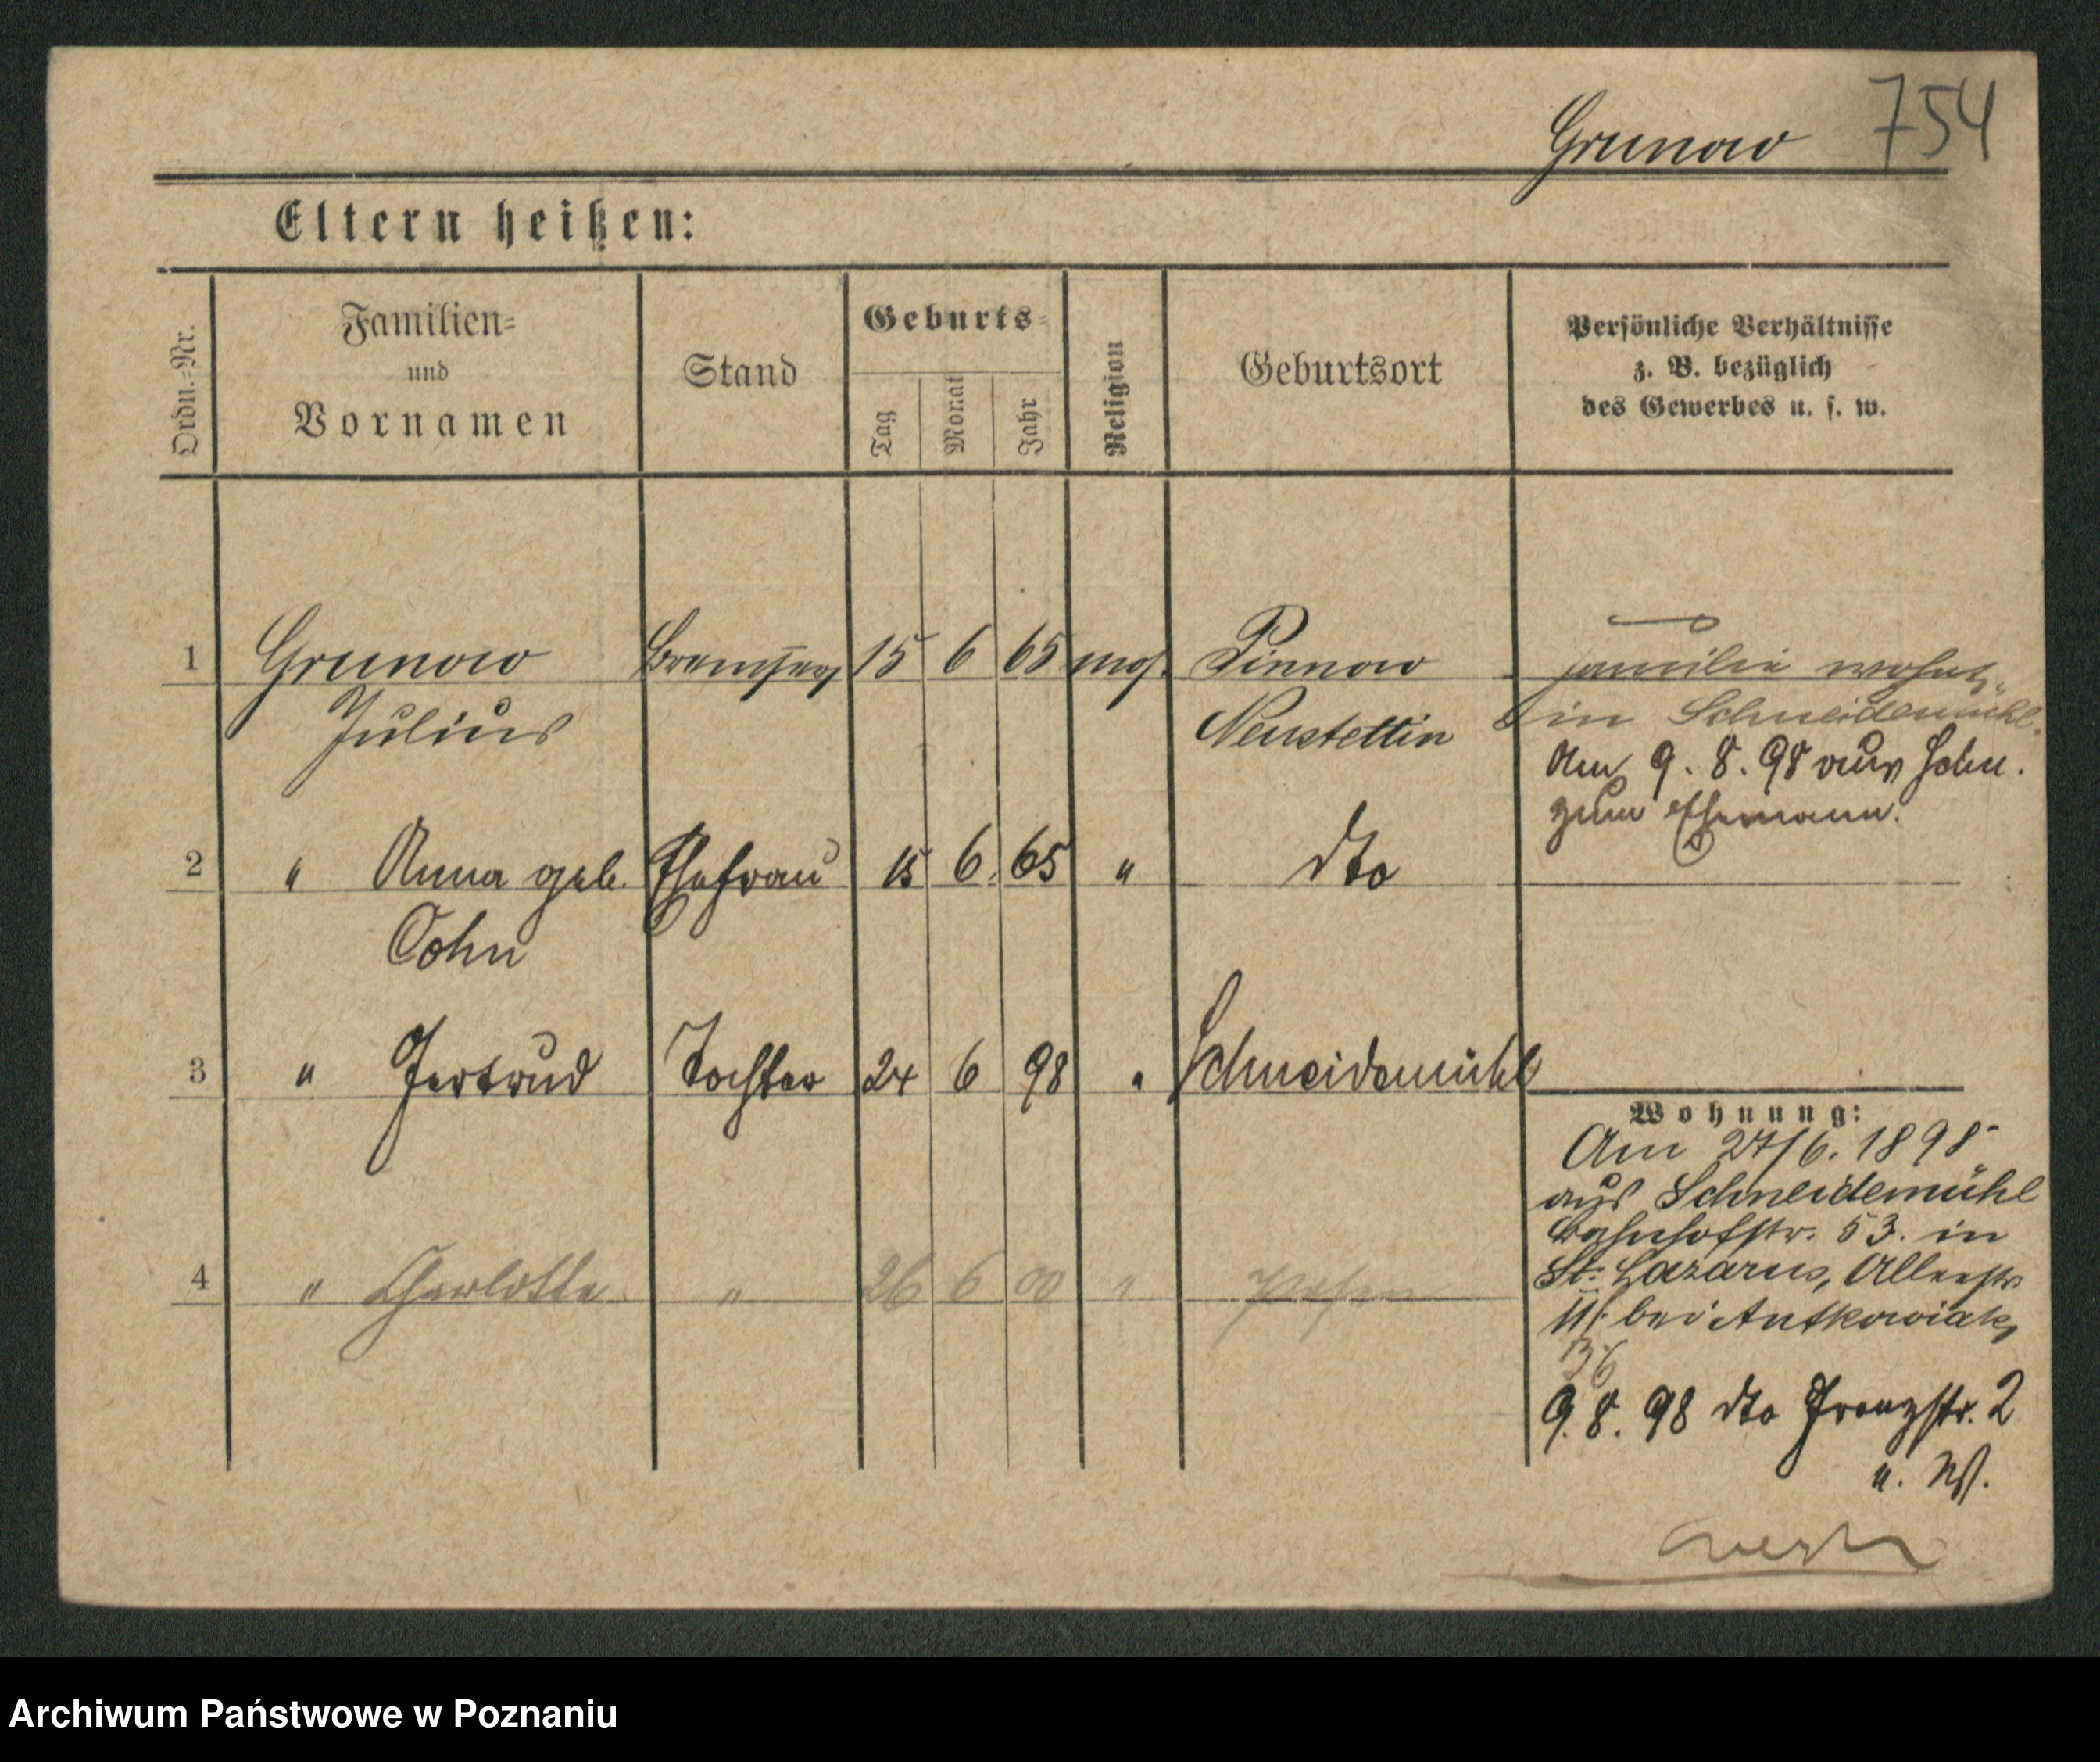 754
Grunow
Eltern heißen:
Ordn.-Nr.
Familien-
und
Vornamen
Stand
Geburts-
Tag
Monat
Jahr
Religion
Geburtsort
Persönliche Verhältnisse
z. B. bezüglich
des Gewerbes u. s. w.
1 Grunow 15 6 65 mos. Pinnow Familie wohnt
Julius Neustettin in Schneidemühl.
Am 9. 8. 98 aus Schn.
zum Ehemann.
2 " Anna geb. Ehefrau 15 6 65 " dto
Cohn
3 " Gertrud Tochter 24 6 98 " Schneidemühl
Wohnung:
Am 27/6. 1898
aus Schneidemühl
Bahnhofstr. 53. in
St. Lazarus,
bei Antkowiak
36
4 " Charlotte " 26 6 00 " Posen
9. 8. 98 dto Franzstr. 2
Archiwum Państwowe w Poznaniu